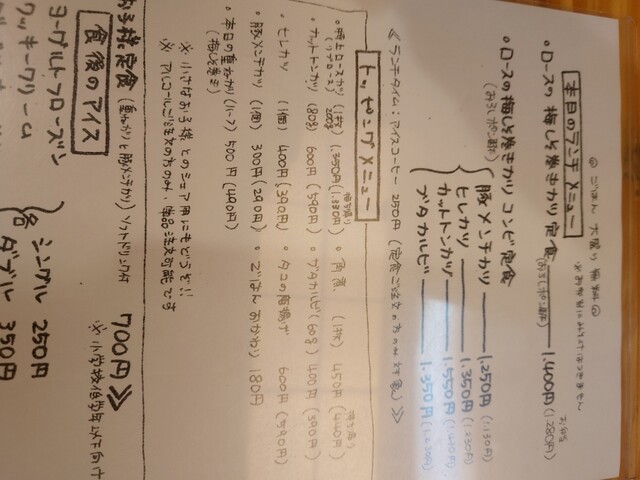 本日のランチメニュー
◎ ごはん 大盛り 無料 ◎
・ロースの梅しそ巻きかつ定食 1.400円 (1.280円)
・ロースの梅しそ巻きかつ コンビ定食
豚メンチカツ 1.250円 (1.130円)
ヒレカツ 1.350円 (1.230円)
カットトンカツ 1.550円
ブタカルビ 1.350円 (1.230円)
≪ランチタイム:アイスコーヒー 250円 (定食ご注文の方のみ対象)≫
トッピングメニュー
カットトンカツ (80g) 600円 (590円)
・ヒレカツ (1個) 400円 (390円)
・豚メンチカツ (1個) 300円 (290円)
・本日の重ねかつ (ハーフ) 500円 (490円)
(梅しそ巻き)
・角煮 (1枚) 450円 (440円)
・ブタカルビ (60g) 400円 (390円)
・タコの唐揚げ 600円 (590円)
・ごはん おかわり 180円
※ 小さなお子様とのシェア用にもどうぞ!!
※ アルコールご注文の方のみ、単品注文可能です
お子様定食 (重ねかつと豚メンチカツ) ソフトドリンク付 700円≫
※ 小学校低学年以下向け
食後のアイス
ヨーグルトフローズン
クッキークリーム
各
シングル 250円
ダブル 350円